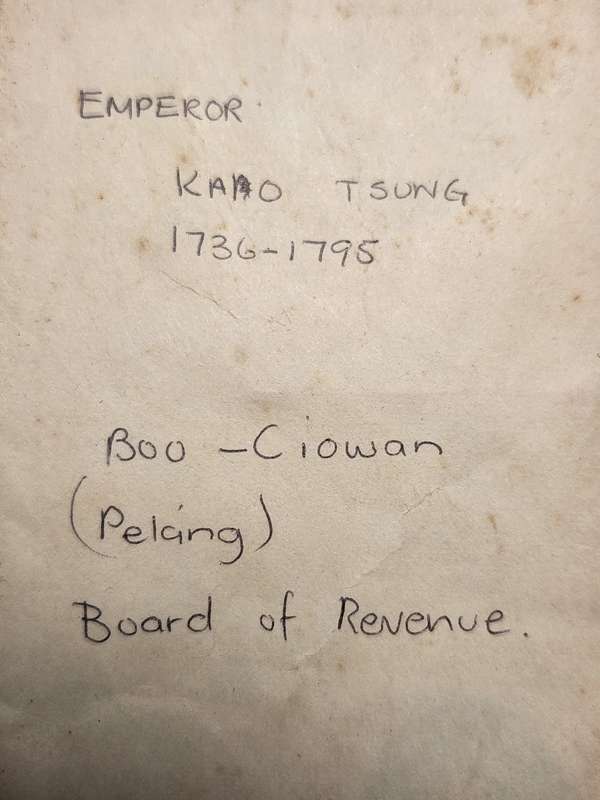 EMPEROR
KAO TSUNG
1736-1795
Boo - Ciowan
(Peláng)
Board of Revenue.